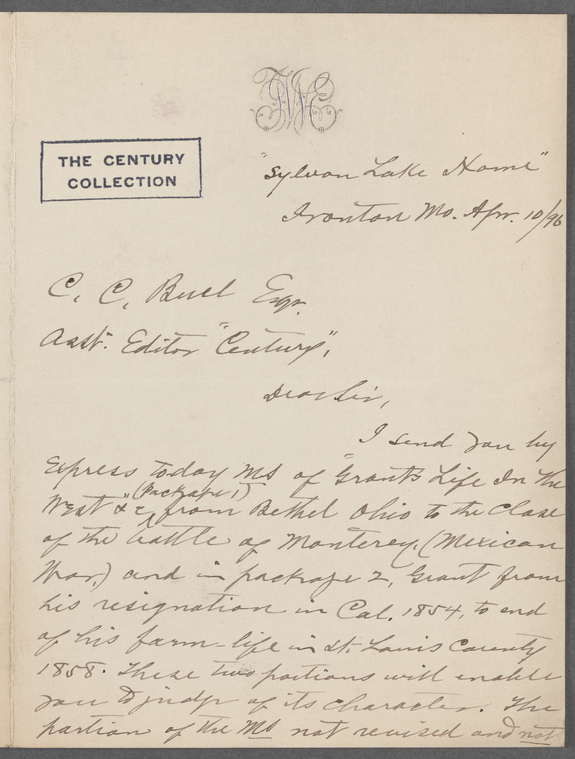 THE CENTURY
COLLECTION
"Sylvan Lake Home"
Ironton Mo. Apr. 10/96
C. C. Buel Esqr.
Asst. Editor "Century",
Dear Sir,
I send you by
Express today Ms of "Grant's Life In the
West &c" (Package 1) from Bethel Ohio to the close
of the battle of Monterey, (Mexican
War,) and in package 2, Grant from
his resignation in Cal. 1854, to end
of his farm-life in St. Louis County
1858. These two portions will enable
you to judge of its character. The
portion of the Ms not revised and not